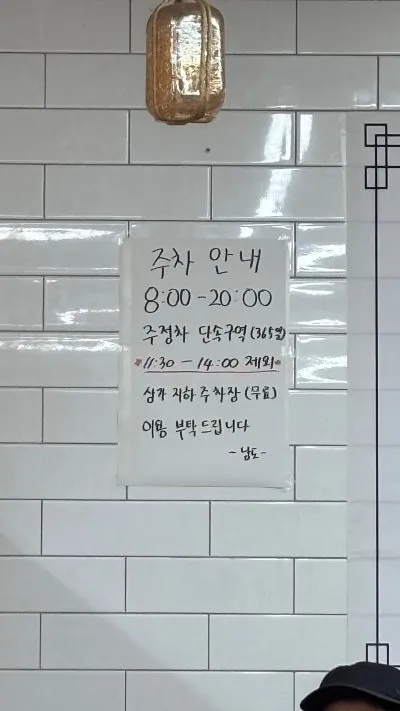 주차 안내
8:00 - 20:00
주정차 단속구역 (365일)
*11:30 - 14:00 제외*
상가 지하 주차장 (무료)
이용 부탁드립니다
- 남도 -